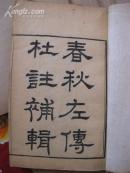 春秋左傳
杜註補輯